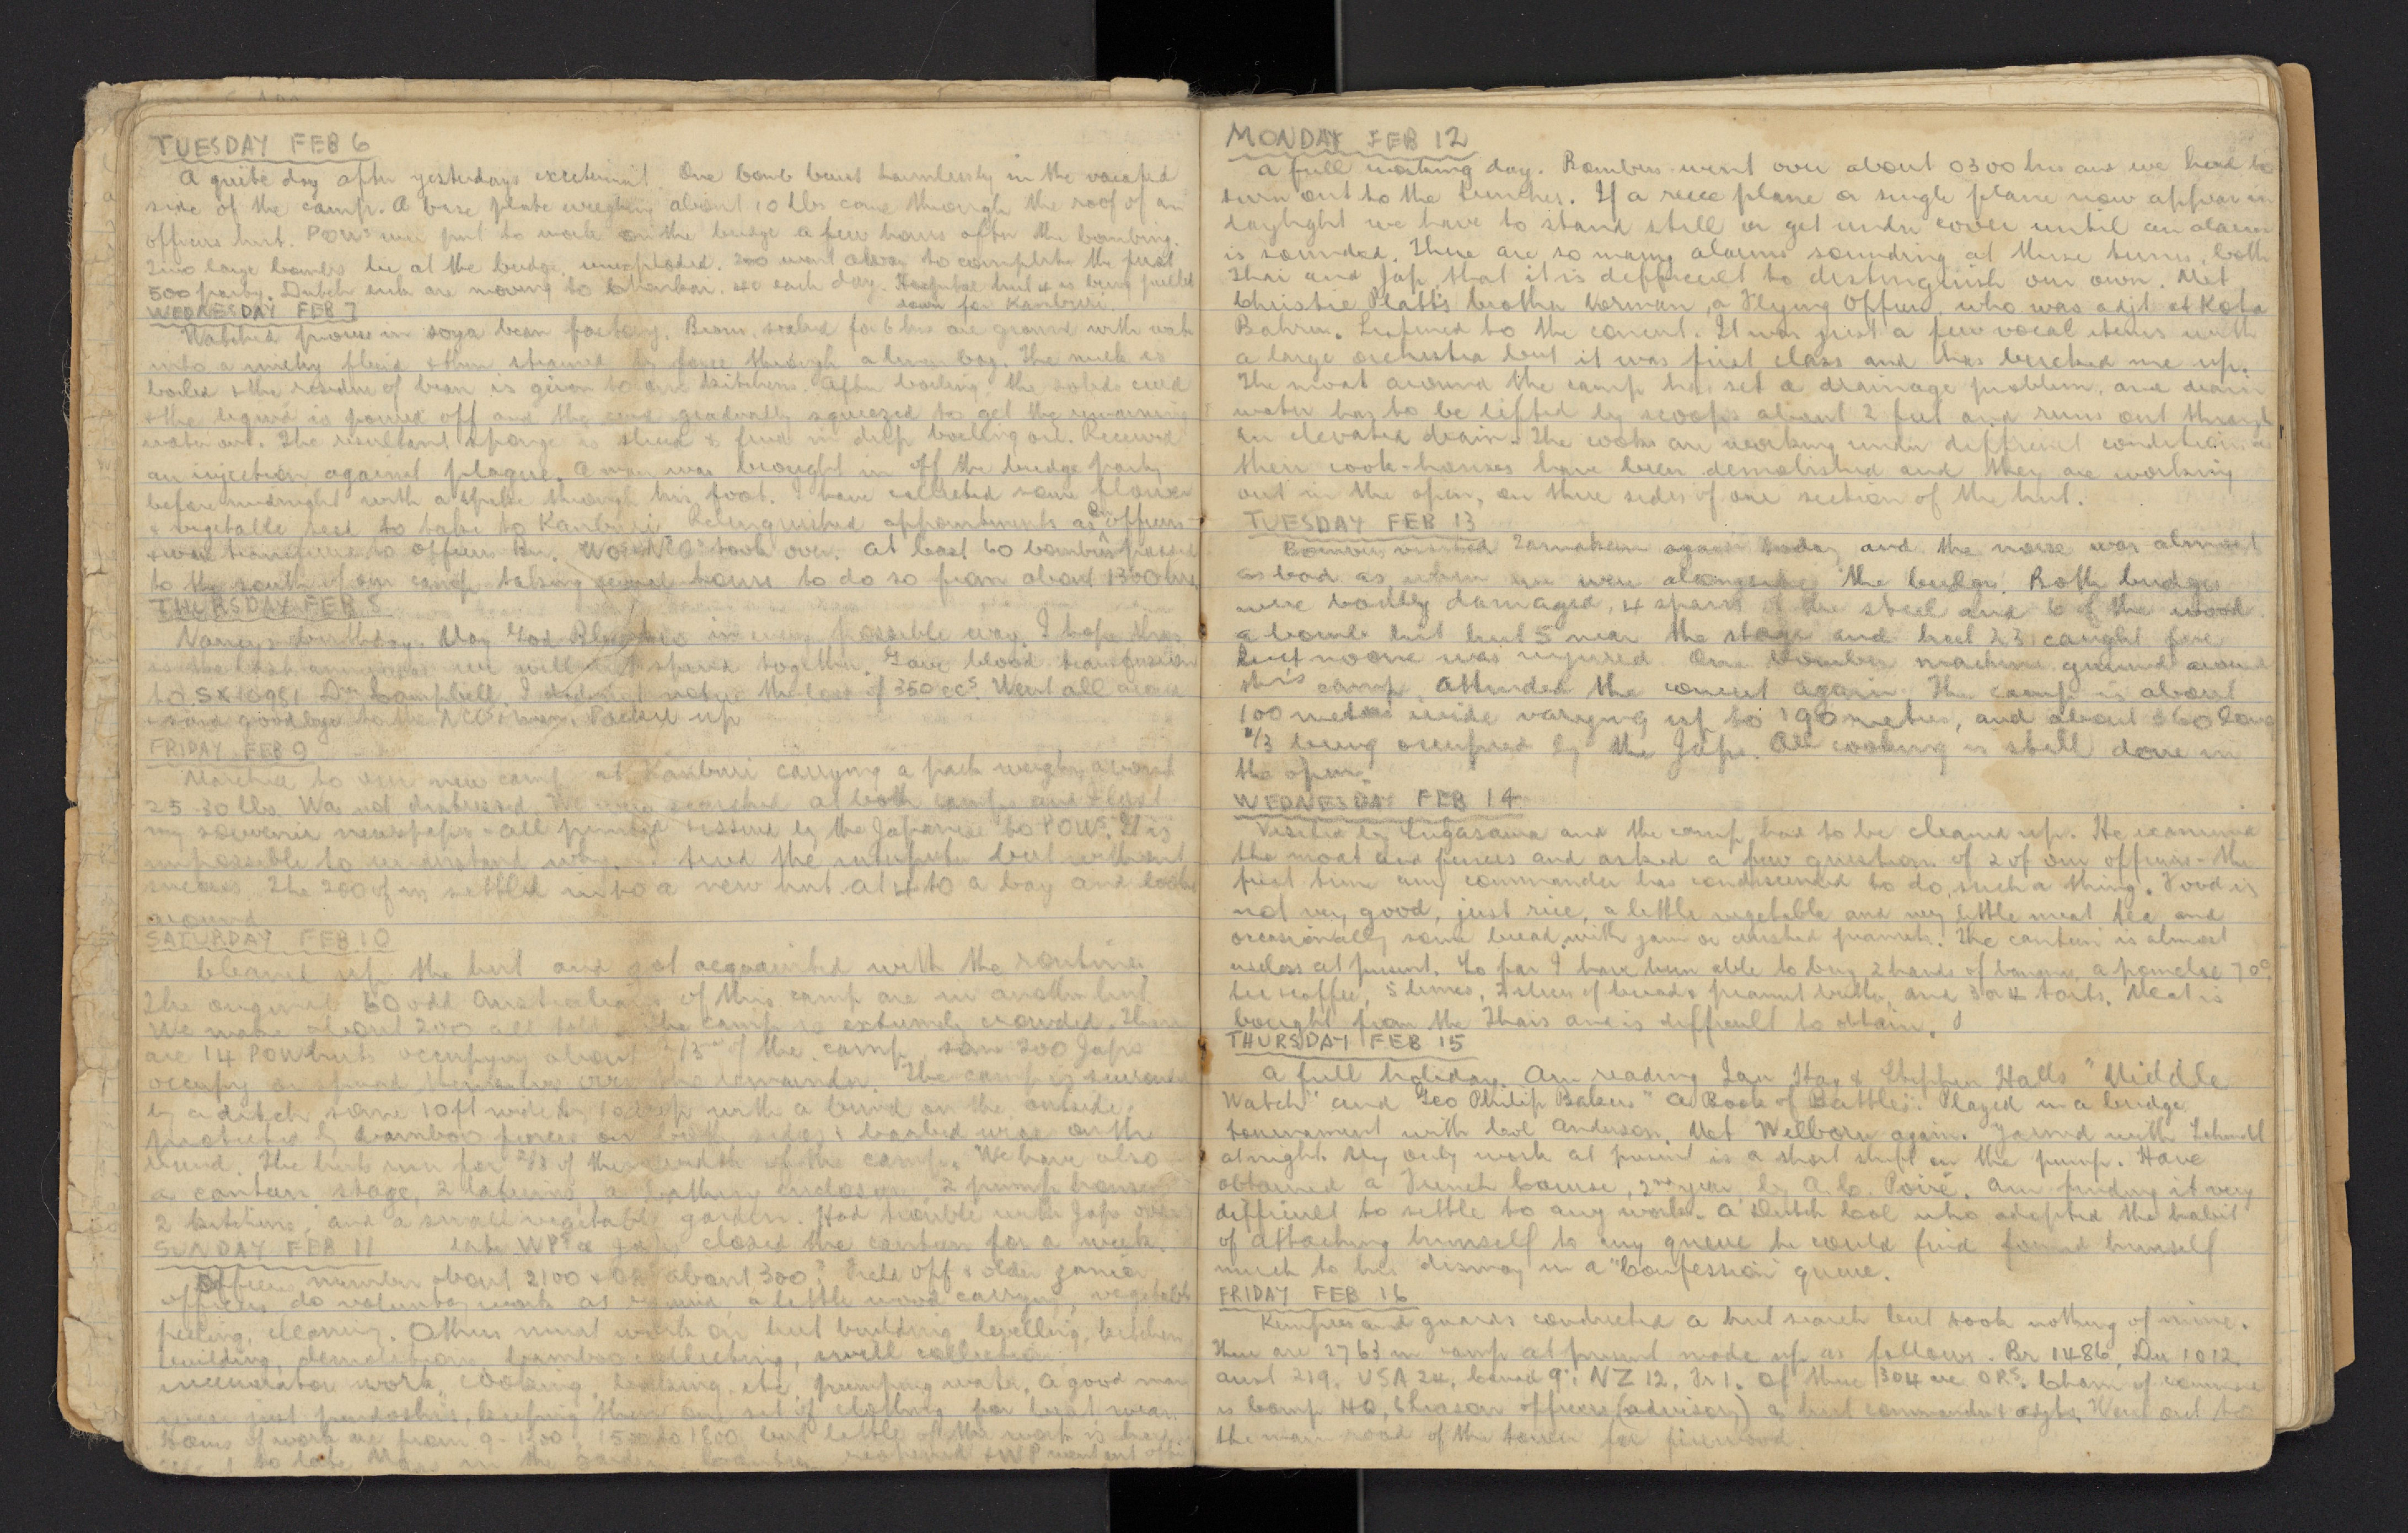 TUESDAY FEB 6
A quite day after yesterdays excitement One bomb burst harmlessly in the vacated
side of the camp. A base plate weighing about 10 lbs came through the roof of an
officers hut. POWs were put to work on the bridge a few hours after the bombing.
Two large bombs lie at the bridge, unexploded. 200 went away to complete the first
500 party. Dutch sick are moving to 40 each day. Hospital hut 4 is being pulled
down for Kanburi.
WEDNESDAY FEB 7
Watched process in soya bean factory. Beans, soaked for 6 hrs are ground with water
into a milky fluid & then strained by force through a linen bag. The milk is
boiled & the residue of bean is given to our kitchens. After boiling the solids curd
& the liquid is poured off and the curd gradually squeezed to get the remaining
water out. The resultant sponge is sliced & fried in deep boiling oil. Received
an injection against plague. A man was brought in off the bridge party
before midnight with a spike through his foot. I have collected some flower
& vegetable seed to take to Kanburi. Relinquished appointments as officers
& were transferred to officers Bn. WO's & NCO's took over. At least 60 bombers passed
to the south of our camp taking several hours to do so from about 1300 hrs.
THURSDAY FEB 8
Nancys birthday. May God Bless her in every possible way. I hope this
is the last anniversary we will not spend together. Gave blood transfusion
to SX10981 Dvr Campbell. I did not notice the loss of 350 ccs. Went all around
& said goodbye to the NCO's & men. Packed up
FRIDAY FEB 9
Marched to our new camp at Kanburi carrying a pack weighing around
25-30 lbs. Was not distressed. We were searched at both camps and I lost
my souvenir newspapers - all printed & issued by the Japanese to POWs. It is
impossible to understand why. tried the interpreter but without
success. The 200 of us settled into a new hut at 4 to a bay and looked
around
SATURDAY FEB 10
Cleaned up the hut and got acquainted with the routine.
The original 50 odd Australians of this camp are in another hut.
We make about 200 all told. The camp is extremely crowded. There
are 14 POW huts occupying about 2/3 of the camp, some 200 Japs
occupy or spread themselves over the remainder. The camp is surrounded
by a ditch some 10 ft wide by 10 deep with a bund on the outside
protected by bamboo fences on both sides & barbed wire on the
bund. The huts run for 2/3 of the width of the camp. We have also
a canteen, stage, 2 latrines, a bathing enclosure, 2 pump houses,
2 kitchens, and a small vegetable garden. Had trouble with Japs over
late WPs & Japs closed the canteen for a week.
SUNDAY FEB 11
Officers number about 2100 & ORs about 300? Field off & older junior
officers do voluntary work as required, a little wood carrying, vegetable
peeling, cleaning. Others must work on hut building, levelling, kitchen
building, demolition, bamboo collecting, swill collection
incinerator work, cooking, etc, pumping water. A good many
wear just fundoshis, keeping their one set of clothing for best wear.
Hours of work are from 9-1300, 1500 to 1800 but little of the work is hard
to late in the garden. Canteen reopened & WP went out
MONDAY FEB 12
A full working day. Bombers went over about 0300 hrs and we had to
turn out to the trenches. If a recce plane or single plane now appear in
daylight we have to stand still or get under cover until an alarm
is sounded. There are so many alarms sounding at these times, both
Thai and Jap, that it is difficult to distinguish our own. Met
Christie Platt's brother Norman, a Flying Officer, who was adjt at Kota
Bahru. Listened to the concert. It was just a few vocal items with
a large orchestra but it was first class and has bucked me up.
The moat around the camp has set a drainage problem, and drain
water has to be lifted by scoops about 2 feet and runs out through
an elevated drain. The cooks are working under difficult conditions as
their cook-houses have been demolished and they are working
out in the open, on three sides of one section of the hut.
TUESDAY FEB 13
Bombers visited Tamakan again today and the noise was almost
as bad as when we were alongside the bridge. Both bridges
were badly damaged, 4 spans of the steel and 6 of the wood.
a bomb hit hut 5 near the stage and hut 23 caught fire
but no one was injured. One bomber machine gunned around
this camp. Attended the concert again. The camp is about
100 metres wide varying up to 190 metres, and about 360 long
1/3 being occupied by the Japs. All cooking is still done in
the open.
WEDNESDAY FEB 14
Visited by Sugasawa and the camp had to be cleaned up. He examined
the moat and fences and asked a few questions of 2 of our officers - the
first time any commander has condescended to do such a thing. Food is
not very good, just rice, a little vegetable and very little meat tea and
occasionally some bread with jam or crushed peanuts. The canteen is almost
useless at present. So far I have been able to buy 2 hands of bananas, a pomelo 70c
tea & coffee, 5 limes, 2 slices of bread & peanut butter, and 3 or 4 tarts. Meat is
bought from the Thais and is difficult to obtain.
THURSDAY FEB 15
A full holiday. Am reading Ian Hay & Stephen Halls "Middle
Watch" and Geo Philip Bakers "A Book of Battles". Played in a bridge
tournament with Col Anderson. Met Welborn again. Yarned with Schundt
at night. My only work at present is a short shift on the pump. Have
obtained a French Course, 2nd year by A.C. Poiré. Am finding it very
difficult to settle to any work. A Dutch Col who adopted the habit
of attaching himself to any queue he could find found himself
much to his dismay in a "Confession" queue.
FRIDAY FEB 16
Kempies and guards conducted a hut search but took nothing of mine.
There are 2763 in camp at present made up as follows. Br 1486, Du 1012
Aust 219, USA 24, Canad 9, NZ 12, Fr 1. Of these 304 are ORs. Chain of command
is Camp HQ, 6 liaison officers (advisory) & hut commanders & adjts. Went out to
the main road of the town for firewood.